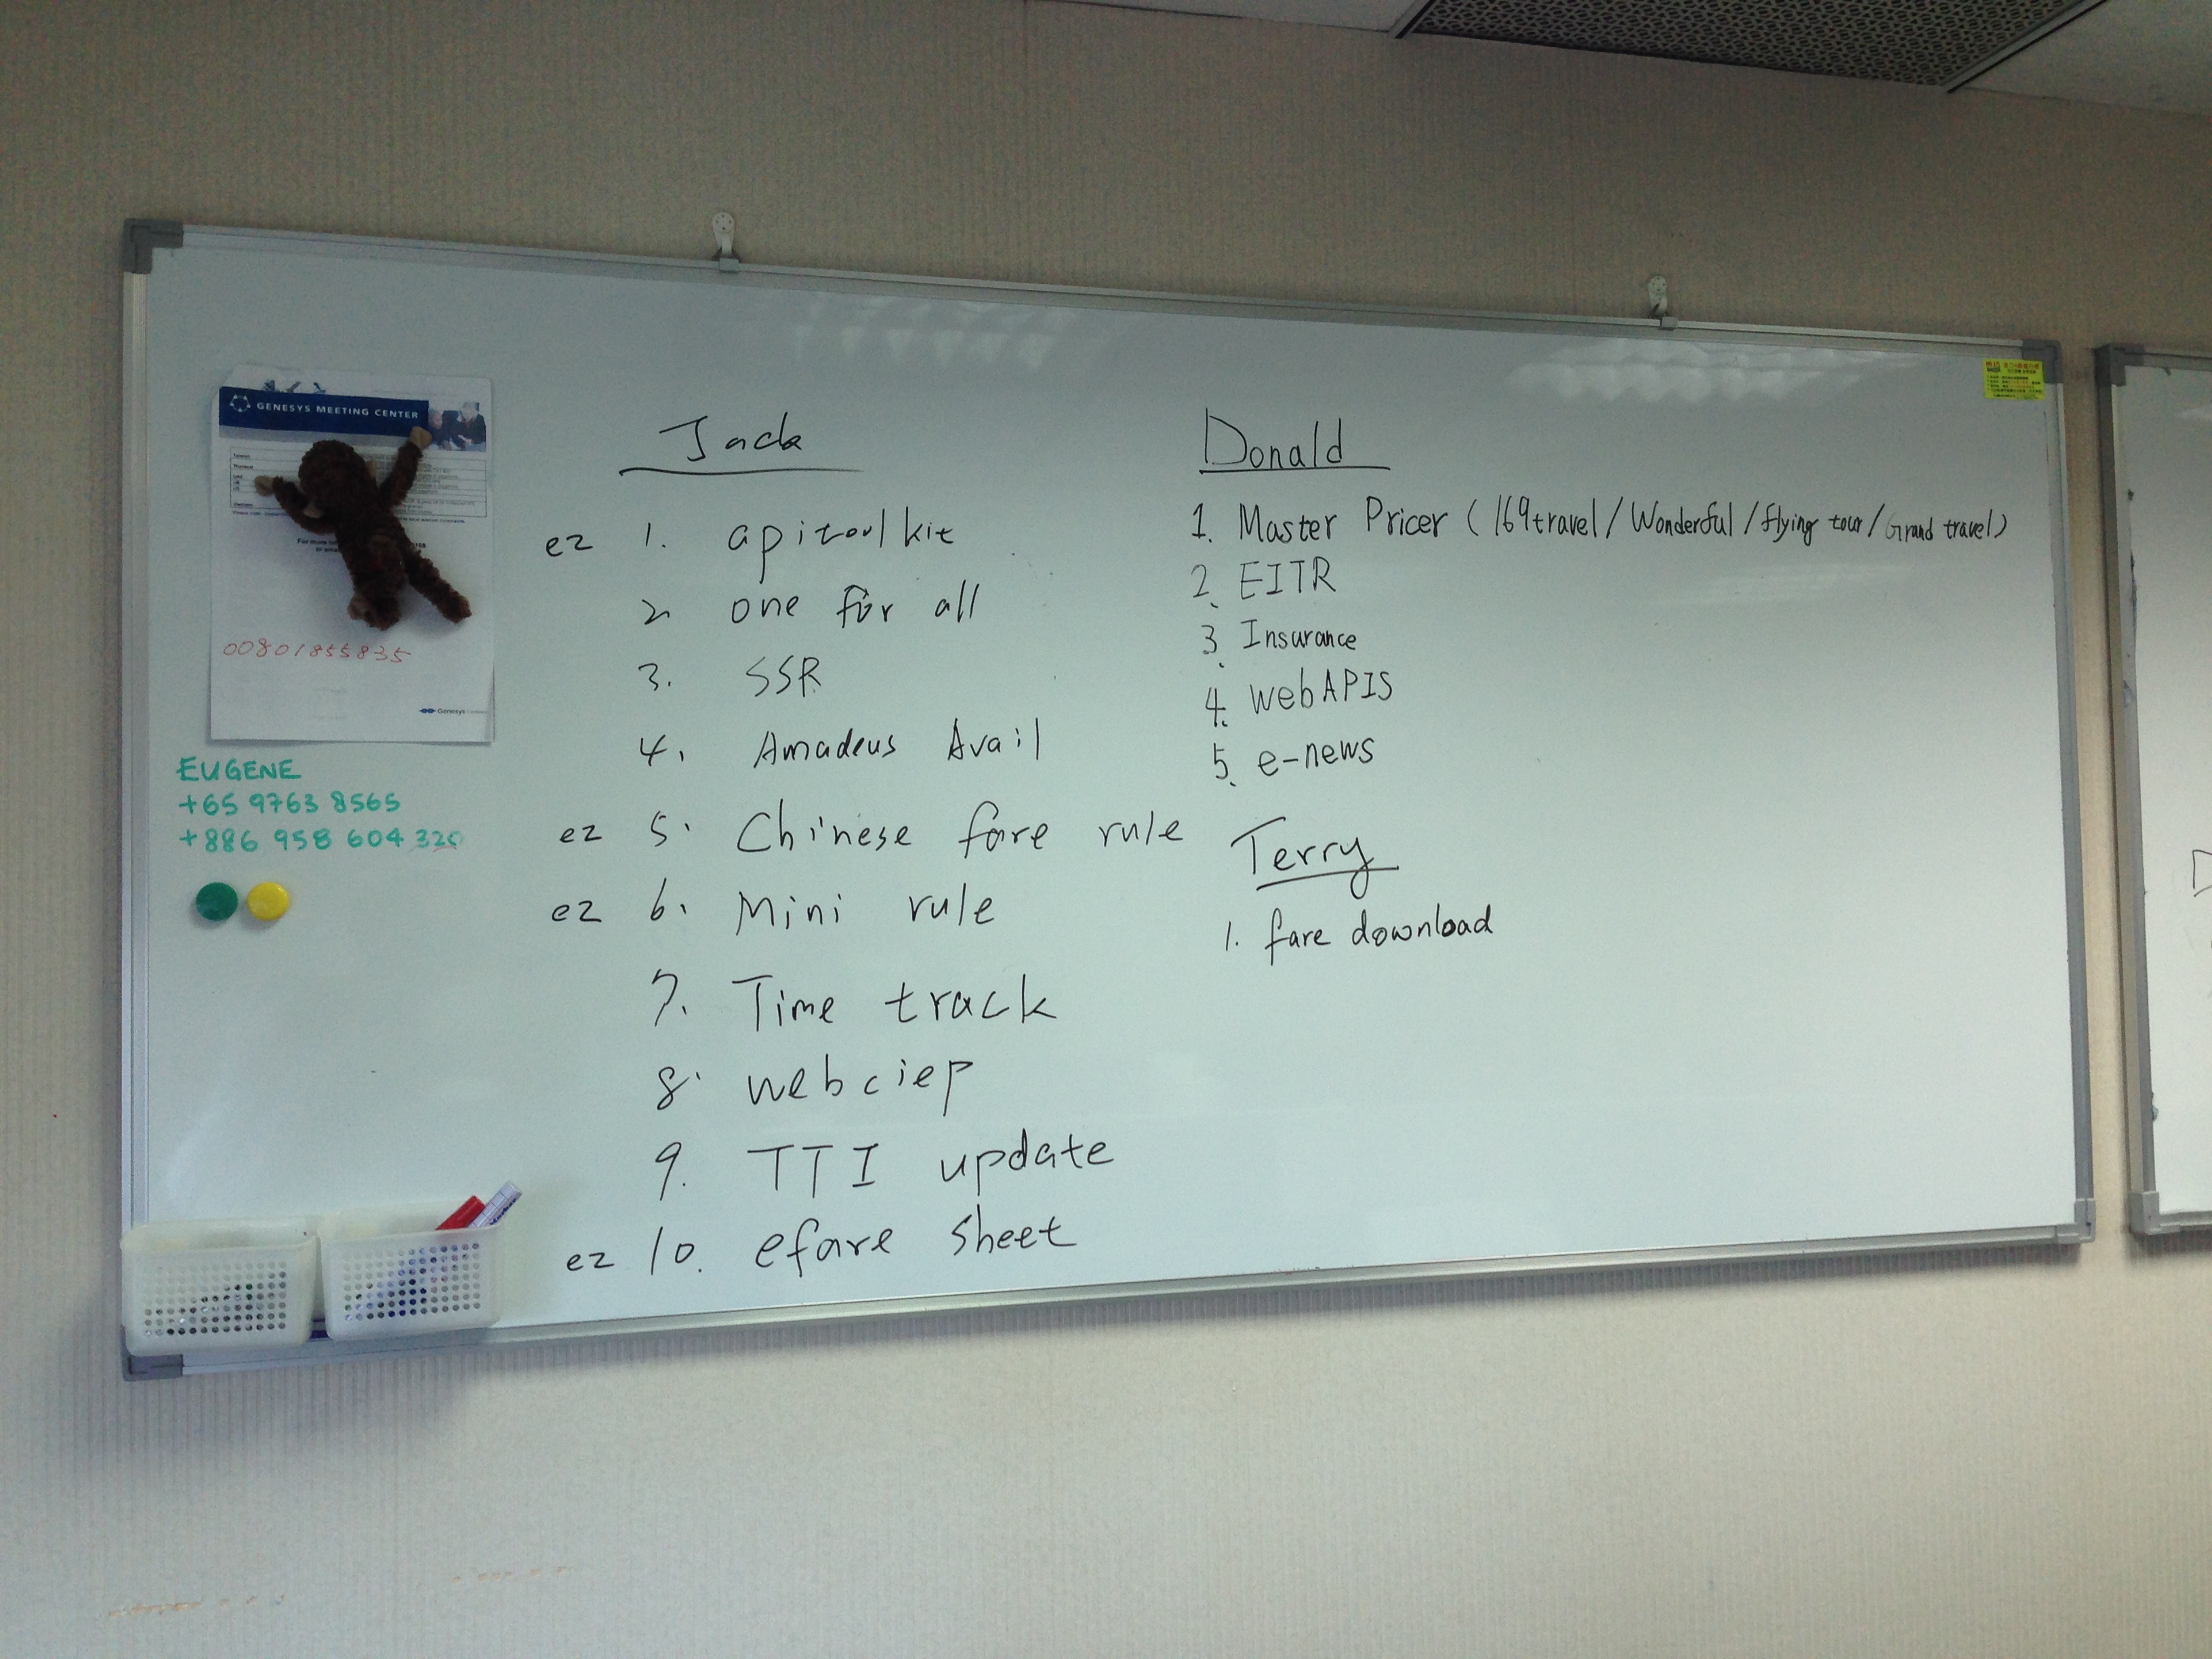 GENESYS MEETING CENTER
00801855835
Genesys
EUGENE
+65 9763 8565
+886 958 604 320
Jack
ez 1. apitoolkit
2. one for all
3. SSR
4. Amadeus Avail
ez 5. Chinese fare rule
ez 6. Mini rule
7. Time track
8. webciep
9. TTI update
ez 10. efare sheet
Donald
1. Master Pricer (169travel/Wonderful/flying tour/Grand travel)
2. EITR
3. Insurance
4. webAPIS
5. e-news
Terry
1. fare download